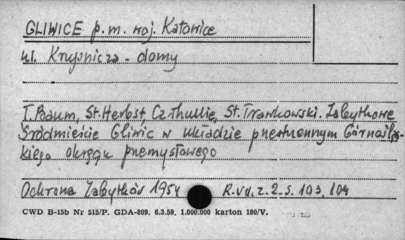 GLIWICE p.m. woj. Katowice
ul. Krupnicza - domy
T. Baum, St. Herbst, Cz. Thullie, St. Trawkowski. Zabytkowe
Śródmieście Gliwic w układzie przestrzennym Górnośląs-
kiego okręgu przemysłowego
Ochrona Zabytków 1954 R. VII, z. 2. s. 103, 104
CWD B-15b Nr 515/P. GDA-809. 6.3.59. 1.000.000 karton 180/V.